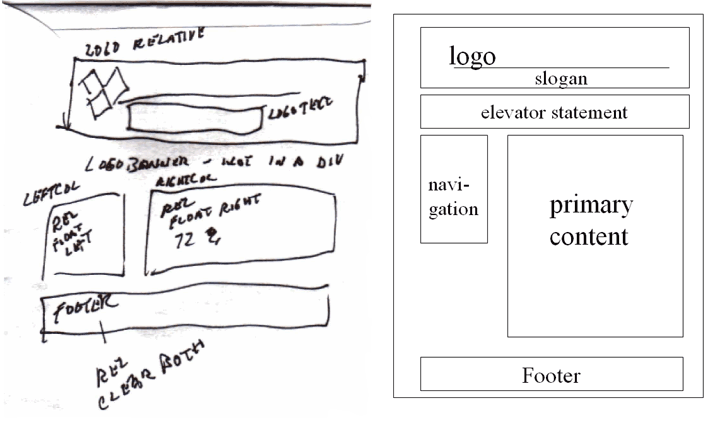 LOGO RELATIVE
LOGOTEXT
LOGOBANNER - NOT IN A DIV
LEFTCOL
REL
FLOAT
LEFT
RIGHTCOL
REL
FLOAT RIGHT
72 %
FOOTER
REL
CLEAR BOTH
logo
slogan
elevator statement
navi-
gation
primary
content
Footer